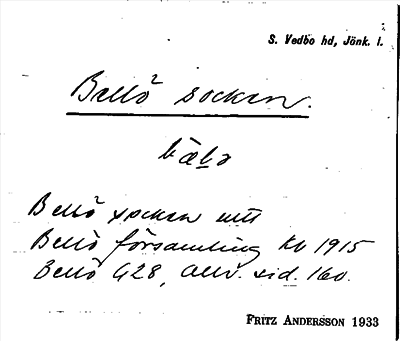 S. Vedbo hd, Jönk. l.
Bellö socken.
Bellö socken utt
Bellö församling Kb 1915
Bellö 428, Allv. sid. 160.
FRITZ ANDERSSON 1933